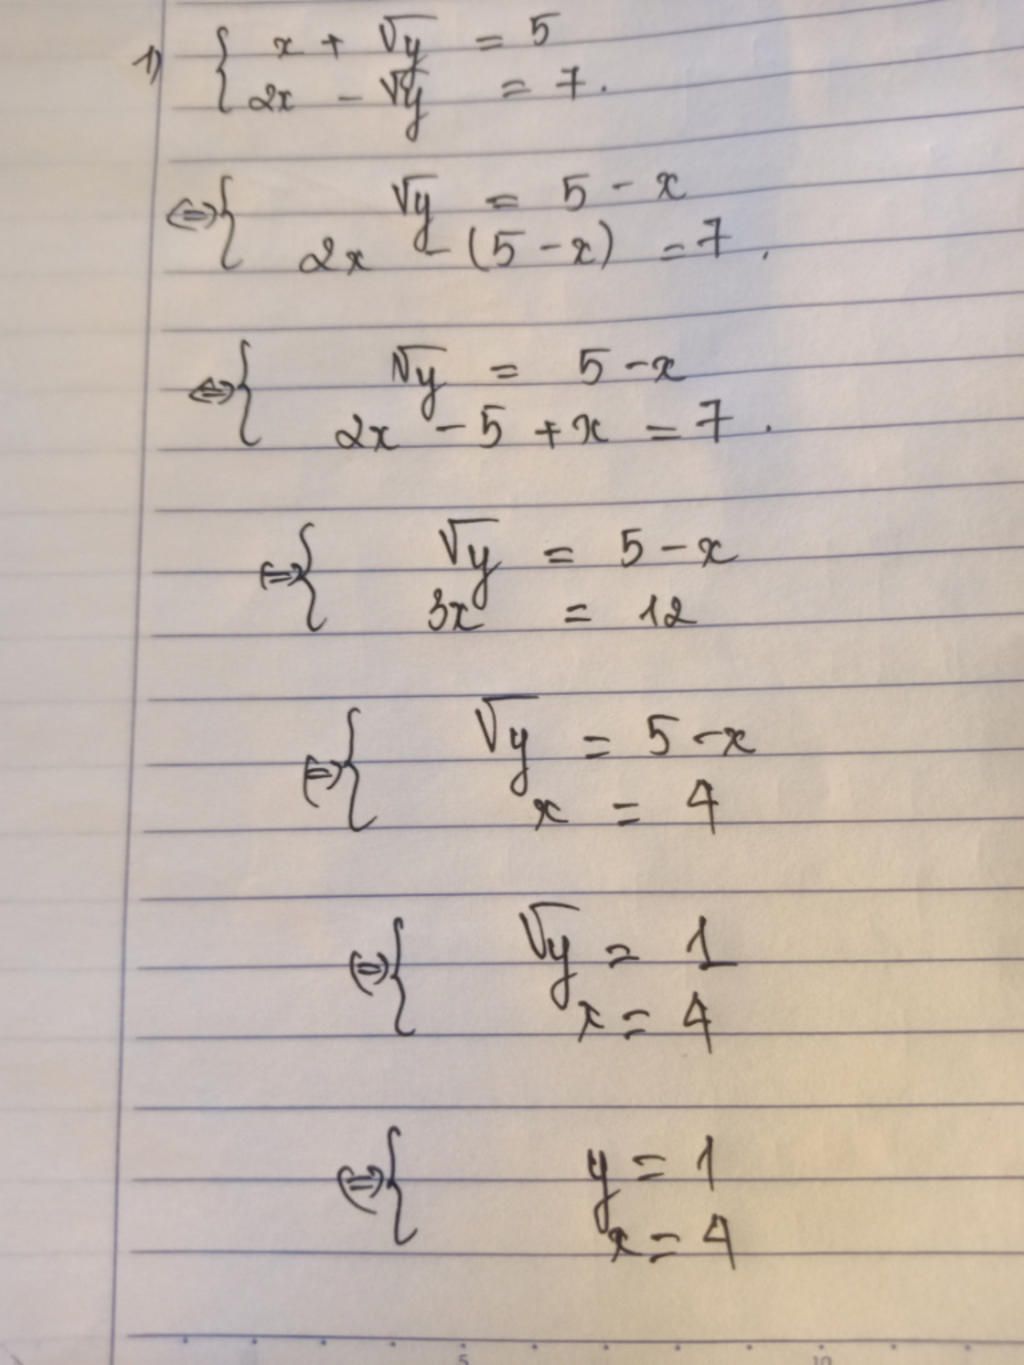 1) { x + √y = 5
2x - √y = 7.
⇔ { √y = 5 - x
2x - (5 - x) = 7.
⇔ { √y = 5 - x
2x - 5 + x = 7.
⇔ { √y = 5 - x
3x = 12
⇔ { √y = 5 - x
x = 4
⇔ { √y = 1
x = 4
⇔ { y = 1
x = 4
5 10